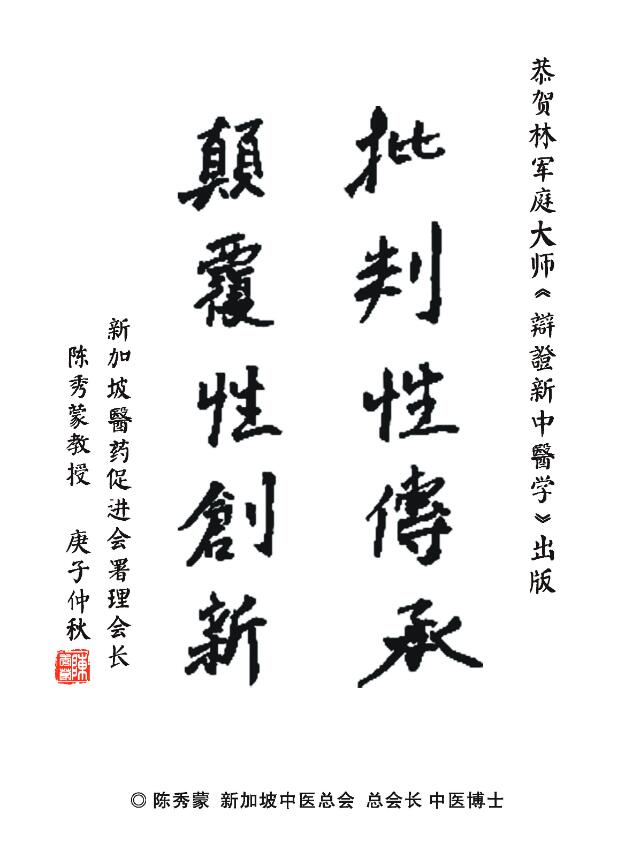 恭贺林军庭大师《辩證新中醫学》出版
批判性傳承
顛覆性創新
新加坡醫药促进会署理会长
陈秀蒙教授 庚子仲秋
◎ 陈秀蒙 新加坡中医总会 总会长 中医博士